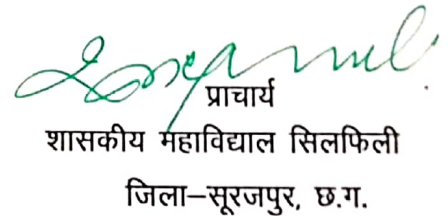 प्राचार्य
शासकीय महाविद्याल सिलफिली
जिला–सूरजपुर, छ.ग.